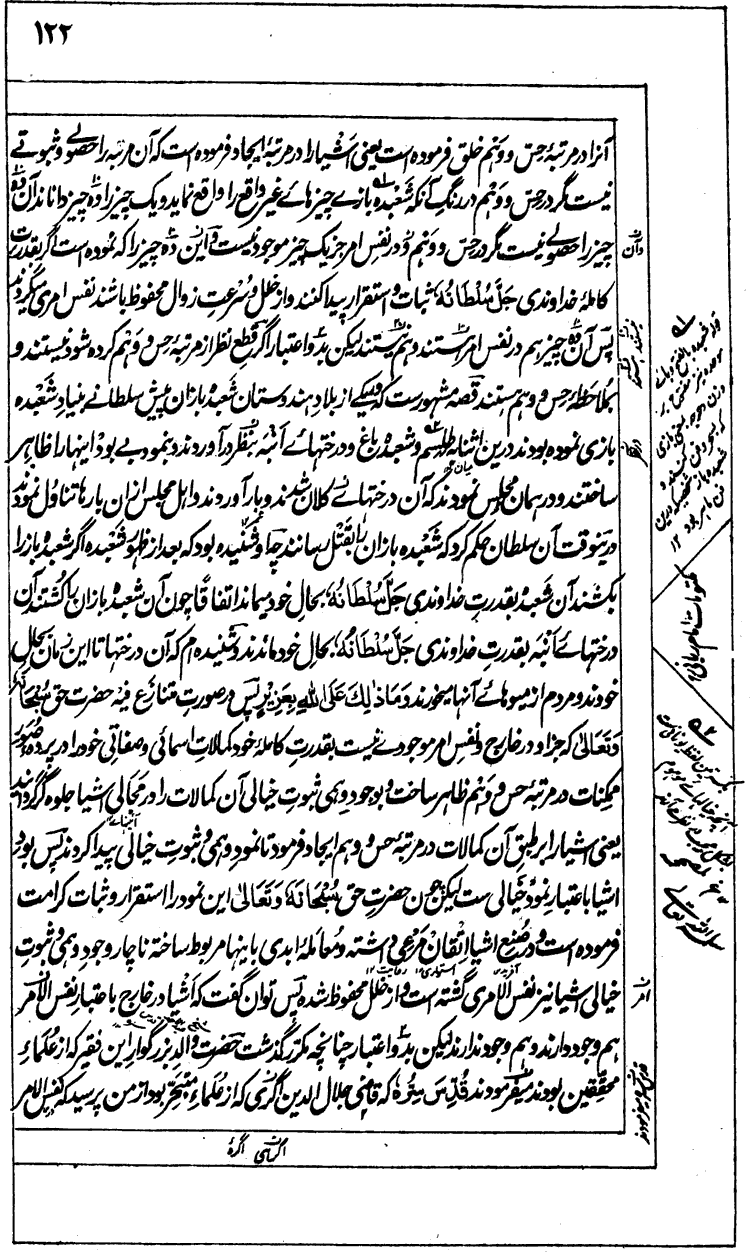 ۱۲۲
آنرا در مرتبهٔ حس و وهم خلق فرموده است یعنی اشیا را در مرتبهٔ ایجاد فرموده است که آن مرتبه را حصولے و ثبوتے
نیست مگر در حس و وهم در رنگ آنکه شعبده بازے چیزهاے غیر واقع را واقع نماید و یک چیز را ده چیز داناند آن ده
چیز را حصولے نیست مگر در حس و وهم و در نفس امر جز یک چیز موجود نیست و این ده چیز را که نموده است اگر بقدرت
کاملهٔ خداوندی جَلَّ سُلْطَانُهُ ثبات و استقرار پیدا کنند و از خلل و سرعت زوال محفوظ باشند نفس امری میگردند
پس آن ده چیز هم در نفس امر هستند و هم نیستند لیکن بدو اعتبار اگر قطع نظر از مرتبهٔ حس و وهم کرده شود نیستند و
بملاحظهٔ حس و وهم هستند قصه مشهور ست که در یکے از بلاد هندوستان شعبده بازان پیش سلطانے بنیاد شعبده
بازی نموده بودند درین اثنا بطلسم و شعبده باغ و درختهاے انبه بنظر در آوردند و نمود بے بود اینها را ظاهر
ساختند و در همان مجلس نمودند که آن درختهاے کلان شدند و بار آوردند و اهل مجلس از ان بارها تناول نمودند
درینوقت آن سلطان حکم کرد که شعبده بازان را بقتل رسانند چه او شنیده بود که بعد از ظهور شعبده اگر شعبده باز را
بکشند آن شعبده بقدرت خداوندی جَلَّ سُلْطَانُهُ بحال خود میماند اتفاقاً چون آن شعبده بازان را کشتند آن
درختهاے انبه بقدرت خداوندی جَلَّ سُلْطَانُهُ بحال خود ماندند و شنیده ام که آن درختها تا این زمان بحال
خودند و مردم از میوهاے آنها میخورند وَمَا ذٰلِكَ عَلَى اللهِ بِعَزِيْزٍ پس در صورت متنازع فیه حضرت حق سُبْحَانَهُ
وَتَعَالٰى که جز او در خارج و نفس امر موجودے نیست بقدرت کاملهٔ خود کمالات اسمائی و صفاتی خود را در پردهٔ صُوَر
ممکنات در مرتبهٔ حس و وهم ظاهر ساخت و بوجود وهمی و ثبوت خیالی آن کمالات را در مجالی اشیا جلوه گر گردانید
یعنی اشیا را بر طبق آن کمالات در مرتبهٔ حس و وهم ایجاد فرمود تا نمود وهمی و ثبوت خیالی پیدا کردند پس بود
اشیا باعتبار نمود خیالی ست لیکن چون حضرت حق سُبْحَانَهُ وَتَعَالٰى این نمود را استقرار و ثبات کرامت
فرموده است و در صنع اشیا اتقان مرعی داشته و معاملهٔ ابدی باینها مربوط ساخته ناچار وجود وهمی و ثبوت
خیالی اشیا نیز نفس الامری گشته است و از خلل محفوظ شده پس توان گفت که اشیا در خارج باعتبار نفس الامر
هم وجود دارند و هم وجود ندارند لیکن بدو اعتبار چنانچه مکرر گذشت حضرت والد بزرگوار این فقیر که از علماے
محققین بودند میفرمودند قُدِّسَ سِرُّهُ که قاضی جلال الدین اگری که از علماء متبحر بود از من پرسید که نفس الامر